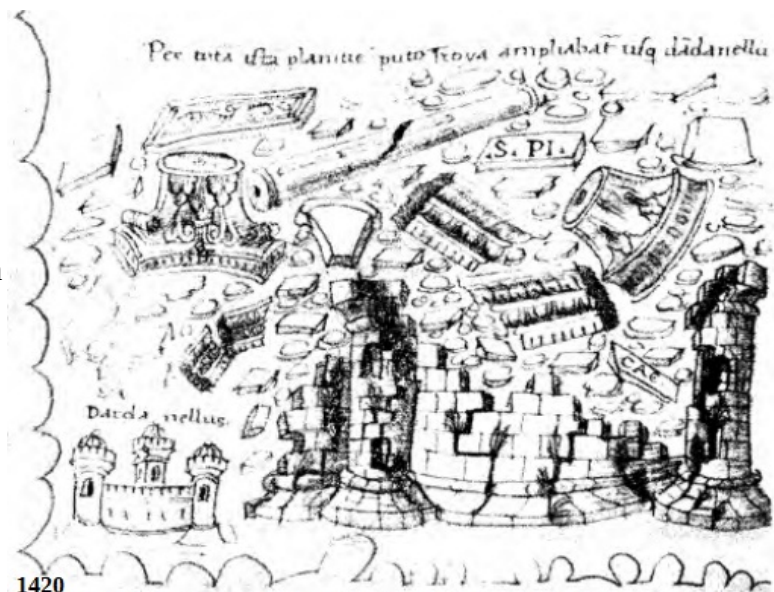 Per totā istā planitie puto Trova ampliabat̄ usq dādanellu
.S. PI.
CAE
Darda nellus
1420